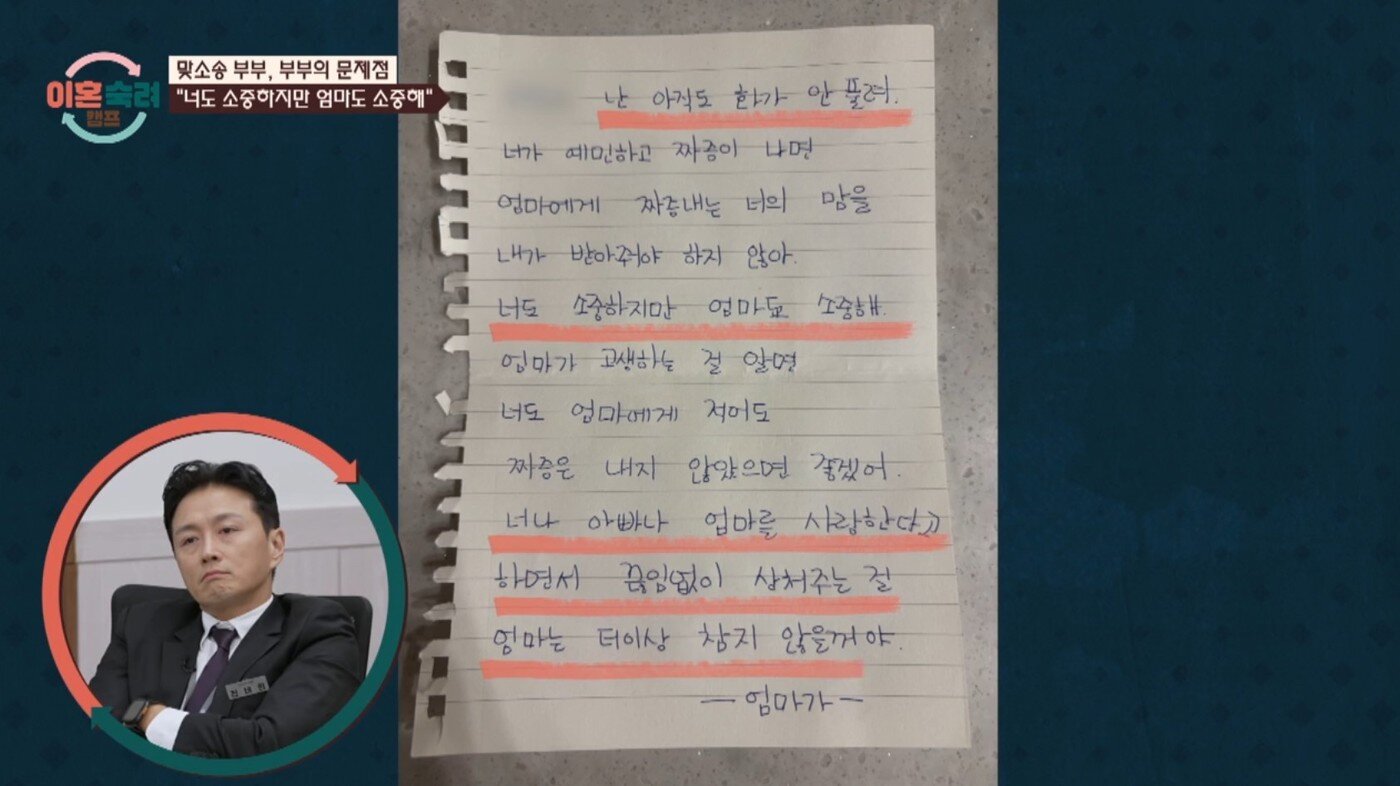 이혼 숙려
캠프
맞소송 부부, 부부의 문제점
"너도 소중하지만 엄마도 소중해"
난 아직도 화가 안 풀려.
너가 예민하고 짜증이 나면
엄마에게 짜증내는 너의 맘을
내가 받아줘야 하지 않아.
너도 소중하지만 엄마도 소중해.
엄마가 고생하는 걸 알면
너도 엄마에게 적어도
짜증은 내지 않았으면 좋겠어.
너나 아빠나 엄마를 사람한다고
하면서 끊임없이 상처주는 걸
엄마는 더이상 참지 않을꺼야.
― 엄마가 ―